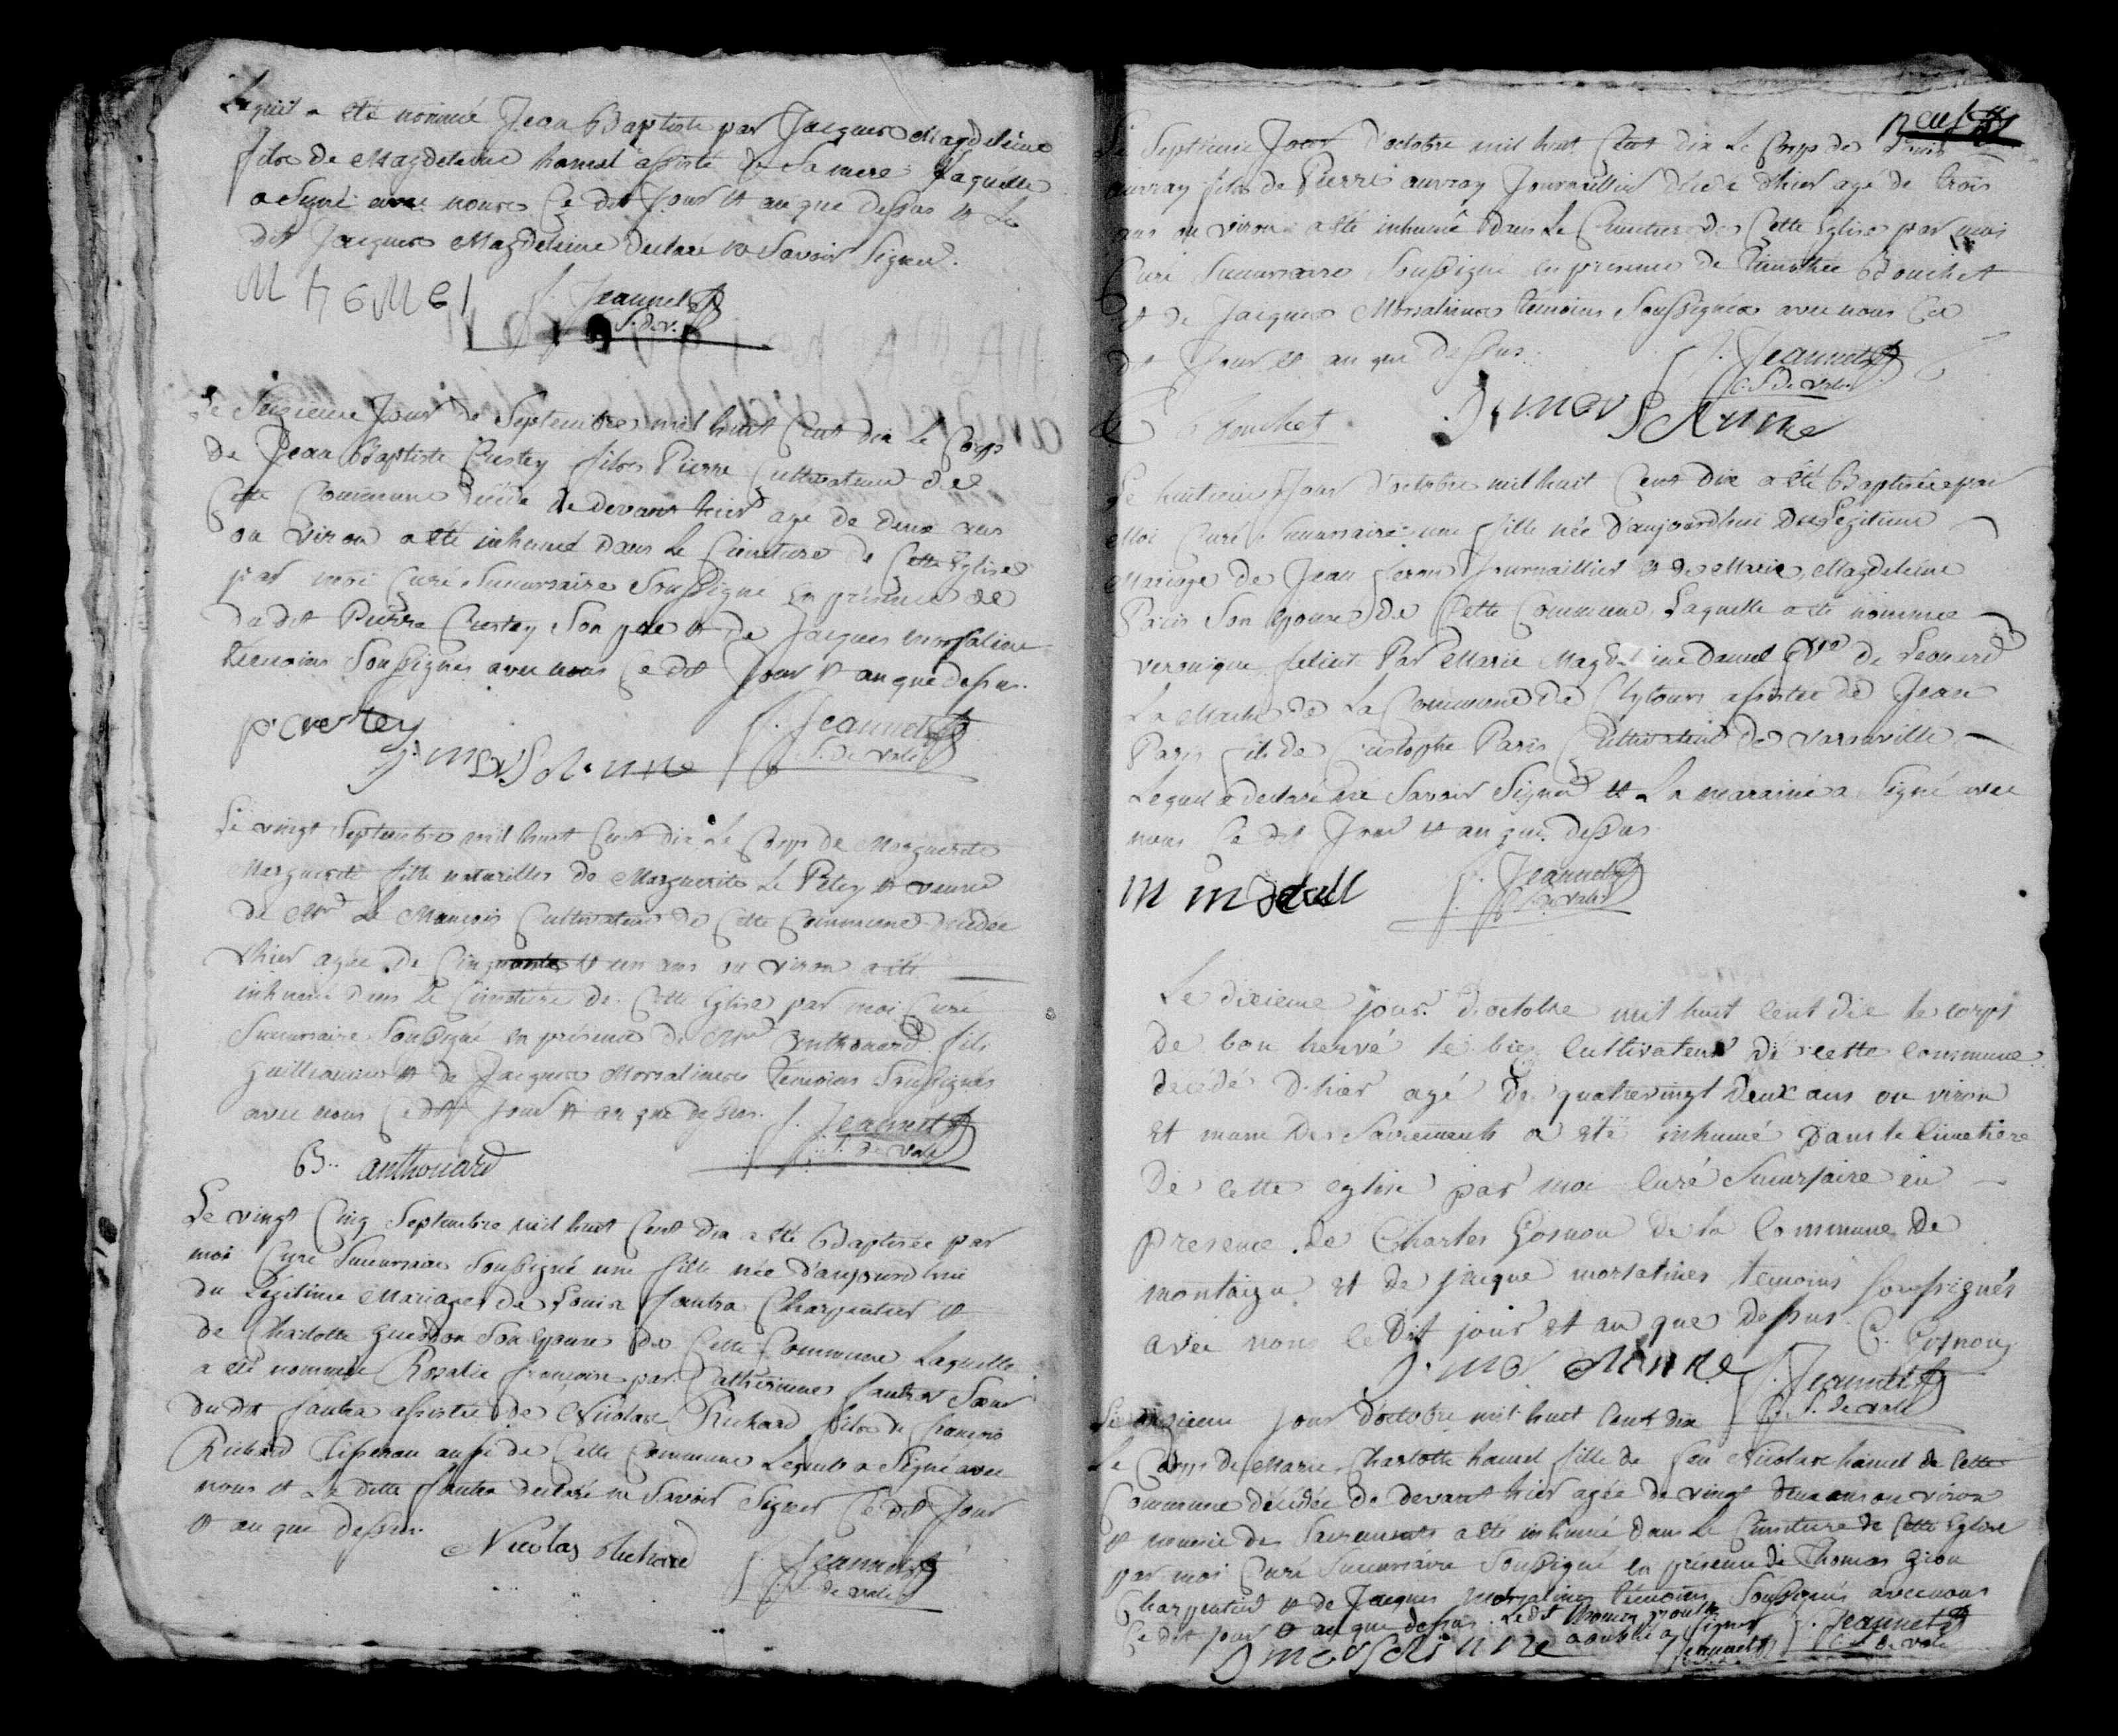 Lequel a été nommé Jean Baptiste par Jacques Magdeleine
fils de Magdeleine hamel assisté de Sa mere Laquelle
a Signé avec nous Ce dit Jour et an que dessus et Le
dit Jacques Magdeleine declaré ne Savoir Signer.
M H6MEl
f. Jeannet
S. d. v.
Le Seizieme Jour de Septembre mil huit Cent dix Le Corps
de Jean Baptiste Crestey fils Pierre Cultivateur de
Cette Commune décédé de devant hier agé de deux ans
ou viron a été inhumé dans Le Cimetiere de Cette Eglise
par moi Curé Succursaire Soussigné en présence de
du dit Pierre Crestey Son pere et de Jacques morsaline
témoins Soussignés avec nous Ce dit Jour et an que dessus.
p. crestey
f. Jeannet
S. de valo
Le vingt Septembre mil huit Cent dix Le Corps de Marguerite
Marguerite fille naturelle de Marguerite Le Petey et veuve
de Le Mancois Cultivateur de Cette Commune décédée
d'hier agée de Cinquante et un ans ou viron a été
inhumée dans Le Cimetiere de Cette Eglise par moi Curé
Succursaire Soussigné en présence de anthouard fils
Guillaume et de Jacques Morsalines témoins Soussignés
avec nous Ce dit Jour et an que dessus.
f. Jeannet
S. de valo
B. anthouard
Le vingt Cinq Septembre mil huit Cent dix a été Baptisée par
moi Curé Succursaire Soussigné une fille née d'aujourd'hui
du Légitime Mariage de Louis fautra Charpentier et
de Charlotte Guesdon Son epouse de Cette Commune Laquelle
a été nommée Rosalie francoise par Catherinne fautra Soeur
du dit fautra assistée de Nicolas Richard fils de francois
Richard Tisseran aussi de Cette Commune Lequel a Signé avec
nous et La dite fautra declaré ne Savoir Signer Ce dit Jour
et an que dessus.
Nicolas Richard
f. Jeannet
S. de valo
neuf
Le Septieme Jour d'octobre mil huit Cent dix Le Corps de Louis
auvray fils de Pierre auvray Journaillier décédé d'hier agé de trois
ans ou viron a été inhumé dans Le Cimetiere de Cette Eglise par moi
Curé Succursaire Soussigné en presence de Timothée Bouchet
et de Jacques Morsalines témoins Soussignés avec nous Ce
dit Jour et an que dessus.
f. Jeannet
C. S. de valo
Bouchet
Le huitieme Jour d'octobre mil huit Cent dix a été Baptisée par
Moi Curé Succursaire une fille née d'aujourd'hui du Légitime
Mariage de Jean feron Journaillier et de Marie Magdeleine
Paris Son epouse de Cette Commune Laquelle a été nommée
veronique felicité Par Marie Magdeleine Daniel de Leonard
La Mache de La Commune de Clytours assistée de Jean
Paris fils de Cristophe Paris Cultivateur de varouville
Lequel a declaré ne Savoir Signer et La maraine a Signé avec
nous Ce dit Jour et an que dessus
f. Jeannet
S. de valo
Le dixieme jour d'octobre mil huit cent dix le corps
de bon hervé le bieq Cultivateur de cette commune
decédé d'hier agé de quatrevingt deux ans ou viron
et muni des Sacrements a été inhumé dans le Cimetiere
de cette eglise par moi Curé Succursaire en
presence de Charles Gosnou de la Commune de
montaigu et de jacque morsalines temoins soussignés
avec nous le dit jour et an que dessus
C. Gosnou
f. Jeannet
C. S. de valo
Le onzieme Jour d'octobre mil huit Cent dix
Le Corps de Marie Charlotte hamel fille de feu Nicolas hamel de Cette
Commune décédée de devant hier agée de vingt deux ans ou viron
et munie des Sacrements a été inhumée dans Le Cimetiere de Cette Eglise
par moi Curé Succursaire Soussigné en présence de Thomas Gion
Charpentier et de Jacques Morsalines témoins Soussignés avec nous
Ce dit Jour et an que dessus. Le dit Thomas
a oublié a signer
Jeannet
f. Jeannet
C. S. de valo